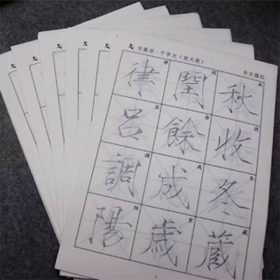 千字文
秋收冬藏
閏餘成歲
律呂調陽